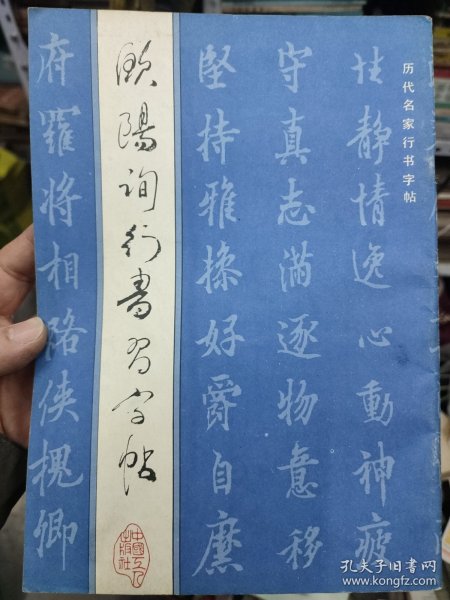 历代名家行书字帖
性静情逸心动神疲
守真志满逐物意移
坚持雅操好爵自縻
欧阳询行书习字帖
府罗将相路侠槐卿
中国工人出版社
孔夫子旧书网
https://book.kongfz.com/